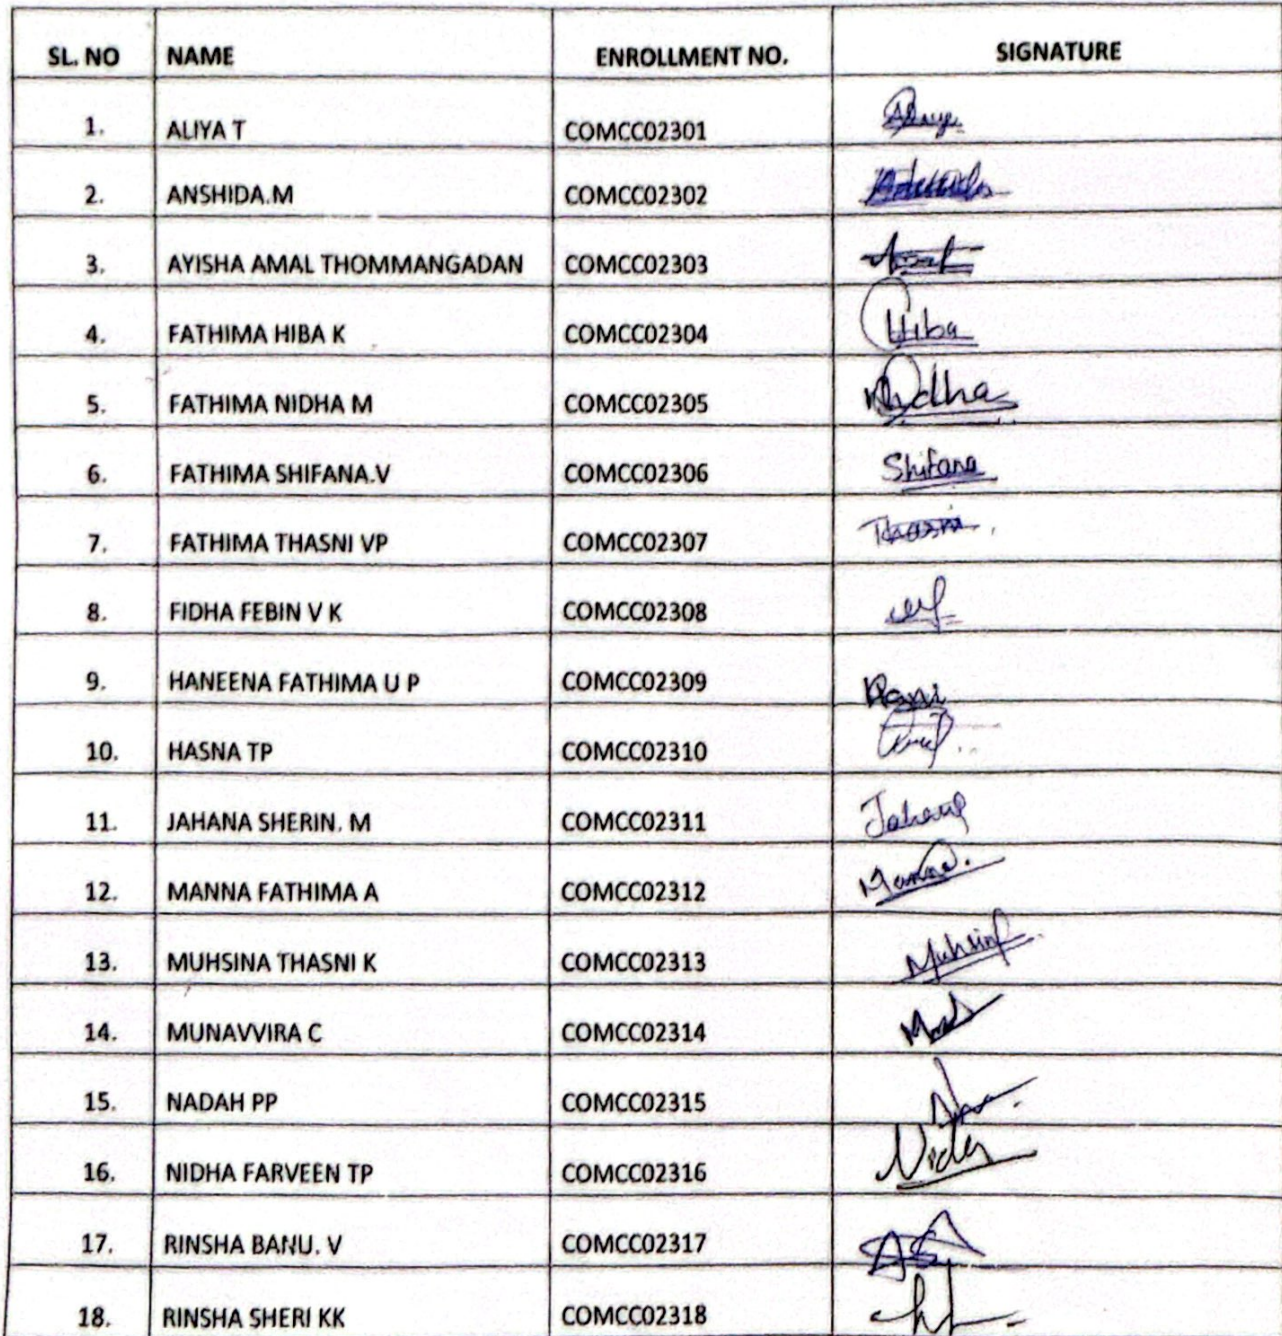 SL. NO NAME ENROLLMENT NO. SIGNATURE
1. ALIYA T COMCC02301
2. ANSHIDA.M COMCC02302
3. AYISHA AMAL THOMMANGADAN COMCC02303
4. FATHIMA HIBA K COMCC02304 Hiba
5. FATHIMA NIDHA M COMCC02305 Nidha
6. FATHIMA SHIFANA.V COMCC02306 Shifana
7. FATHIMA THASNI VP COMCC02307 Thasni
8. FIDHA FEBIN V K COMCC02308
9. HANEENA FATHIMA U P COMCC02309
10. HASNA TP COMCC02310
11. JAHANA SHERIN. M COMCC02311 Jahana
12. MANNA FATHIMA A COMCC02312 Manna
13. MUHSINA THASNI K COMCC02313 Muhsina
14. MUNAVVIRA C COMCC02314
15. NADAH PP COMCC02315
16. NIDHA FARVEEN TP COMCC02316
17. RINSHA BANU. V COMCC02317
18. RINSHA SHERI KK COMCC02318